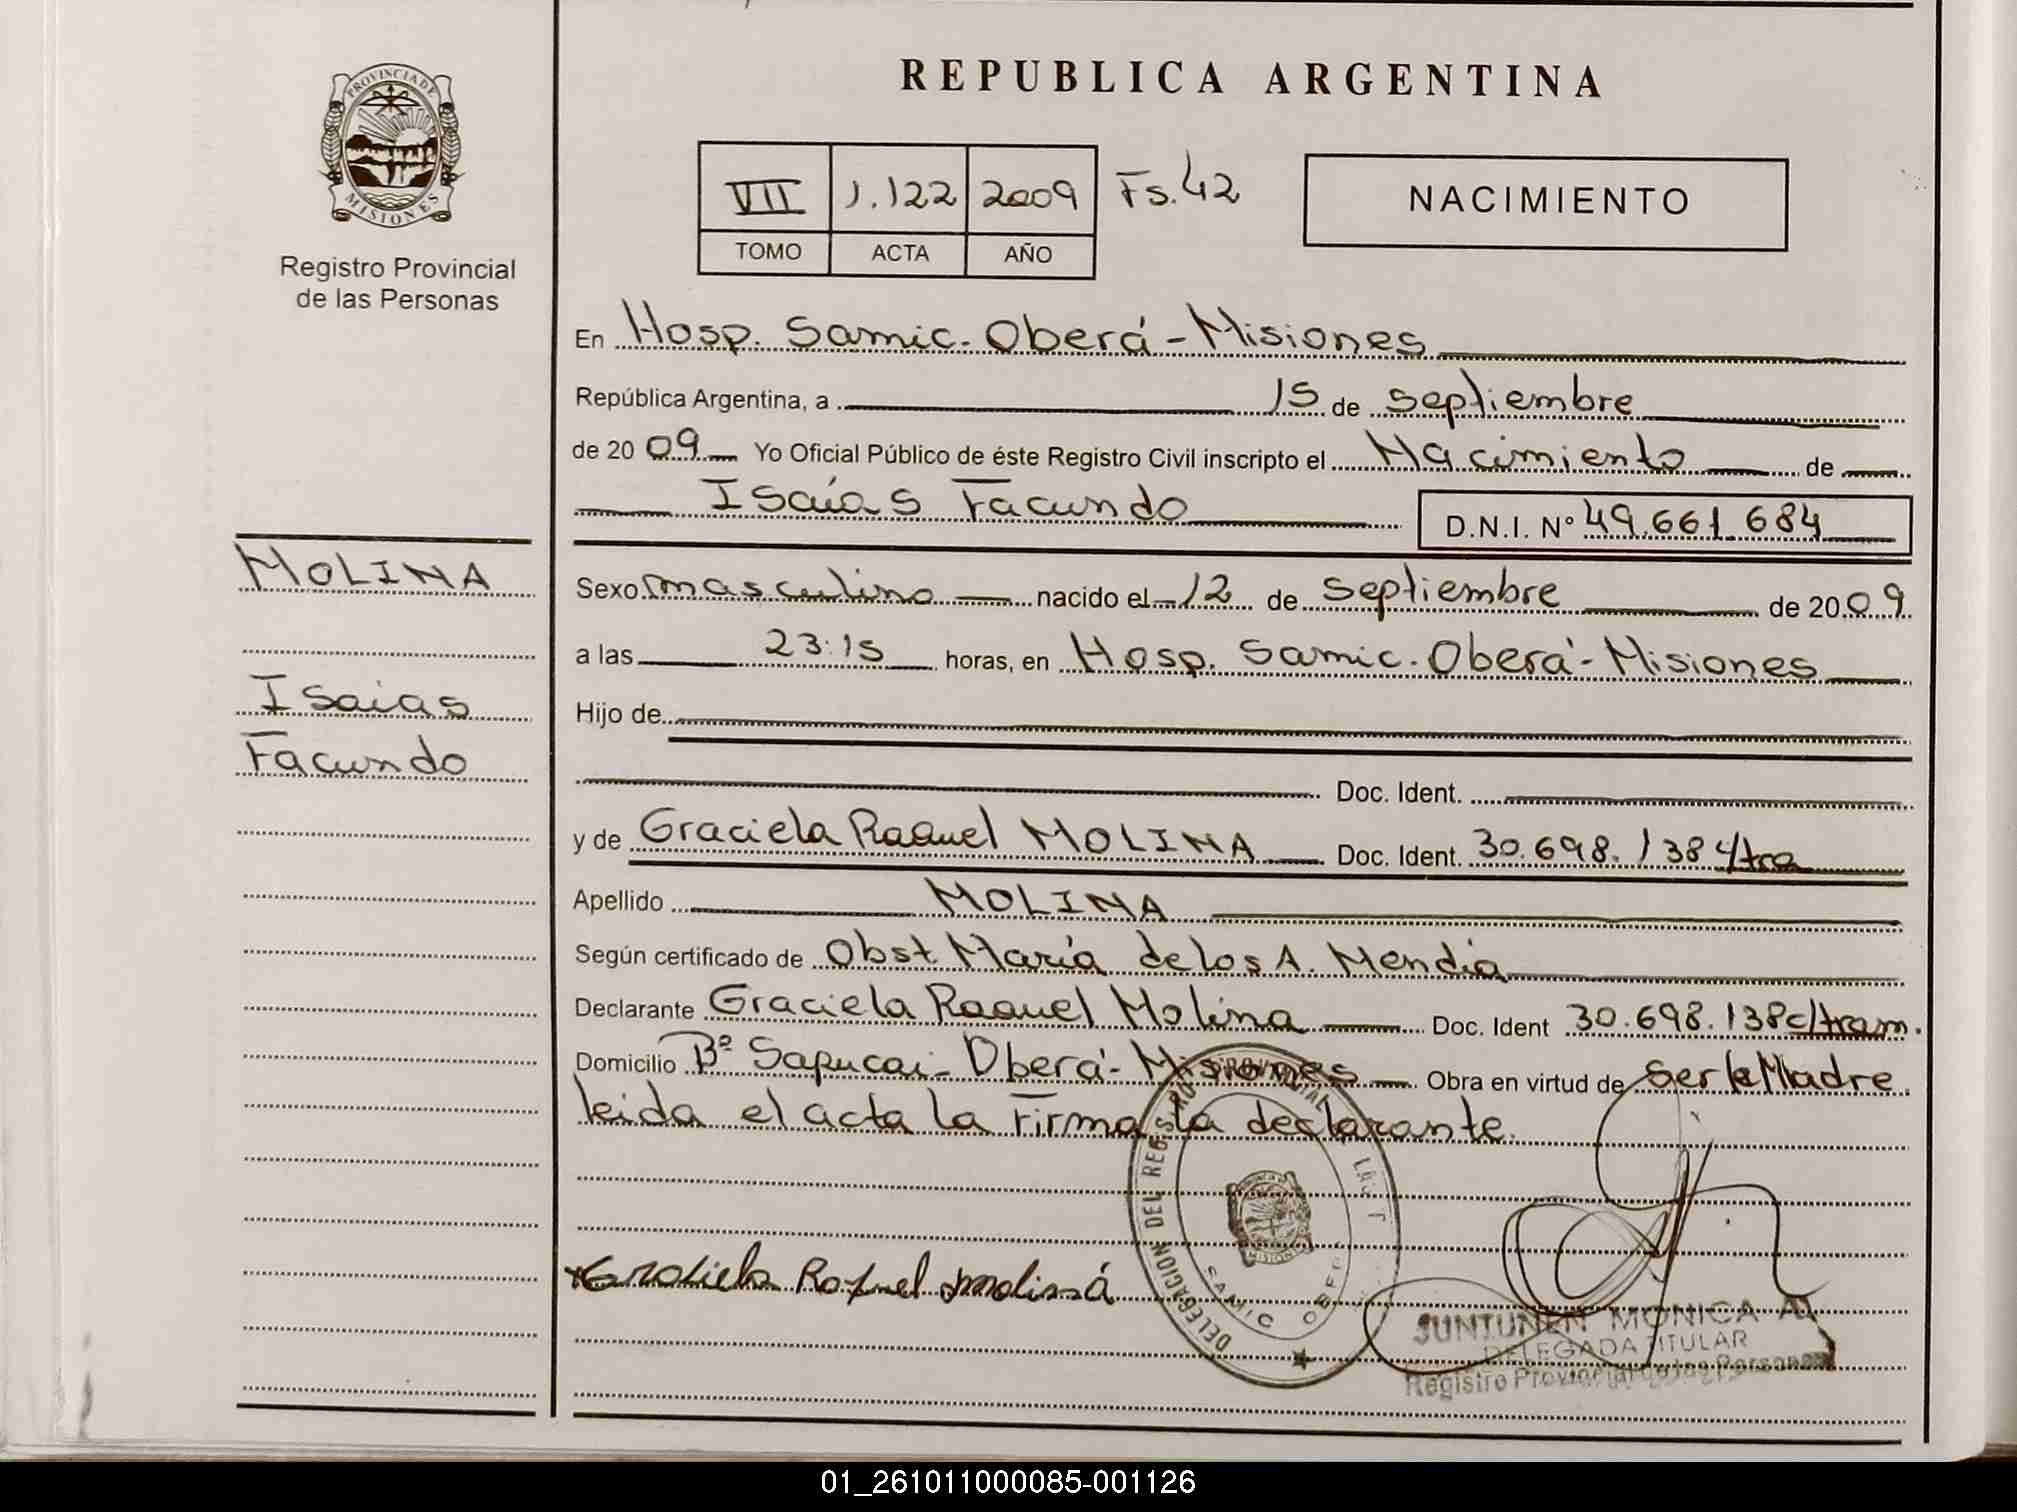 REPUBLICA ARGENTINA
PROVINCIA DE
MISIONES
Registro Provincial
de las Personas
VII 1.122 2009 Fs. 42
TOMO ACTA AÑO
NACIMIENTO
En Hosp. Samic. Oberá - Misiones
República Argentina, a 15 de septiembre
de 2009 Yo Oficial Público de éste Registro Civil inscripto el Nacimiento de
Isaías Facundo D.N.I. Nº 49.661.684
MOLINA
Isaias
Facundo
Sexo masculino nacido el 12 de septiembre de 2009
a las 23:15 horas, en Hosp. Samic. Oberá - Misiones
Hijo de
Doc. Ident.
y de Graciela Raquel MOLINA Doc. Ident. 30.698.138 c/tra
Apellido MOLINA
Según certificado de Obst María de los A. Mendia
Declarante Graciela Raquel Molina Doc. Ident 30.698.138 c/tram.
Domicilio Bº Sapucai - Oberá - Misiones Obra en virtud de Ser la Madre
leida el acta la firma la declarante.
DELEGACION DEL
Graciela Raquel Molina
JUNTUNEN MONICA A.
DELEGADA TITULAR
Registro Provincial de las Personas
01_261011000085-001126